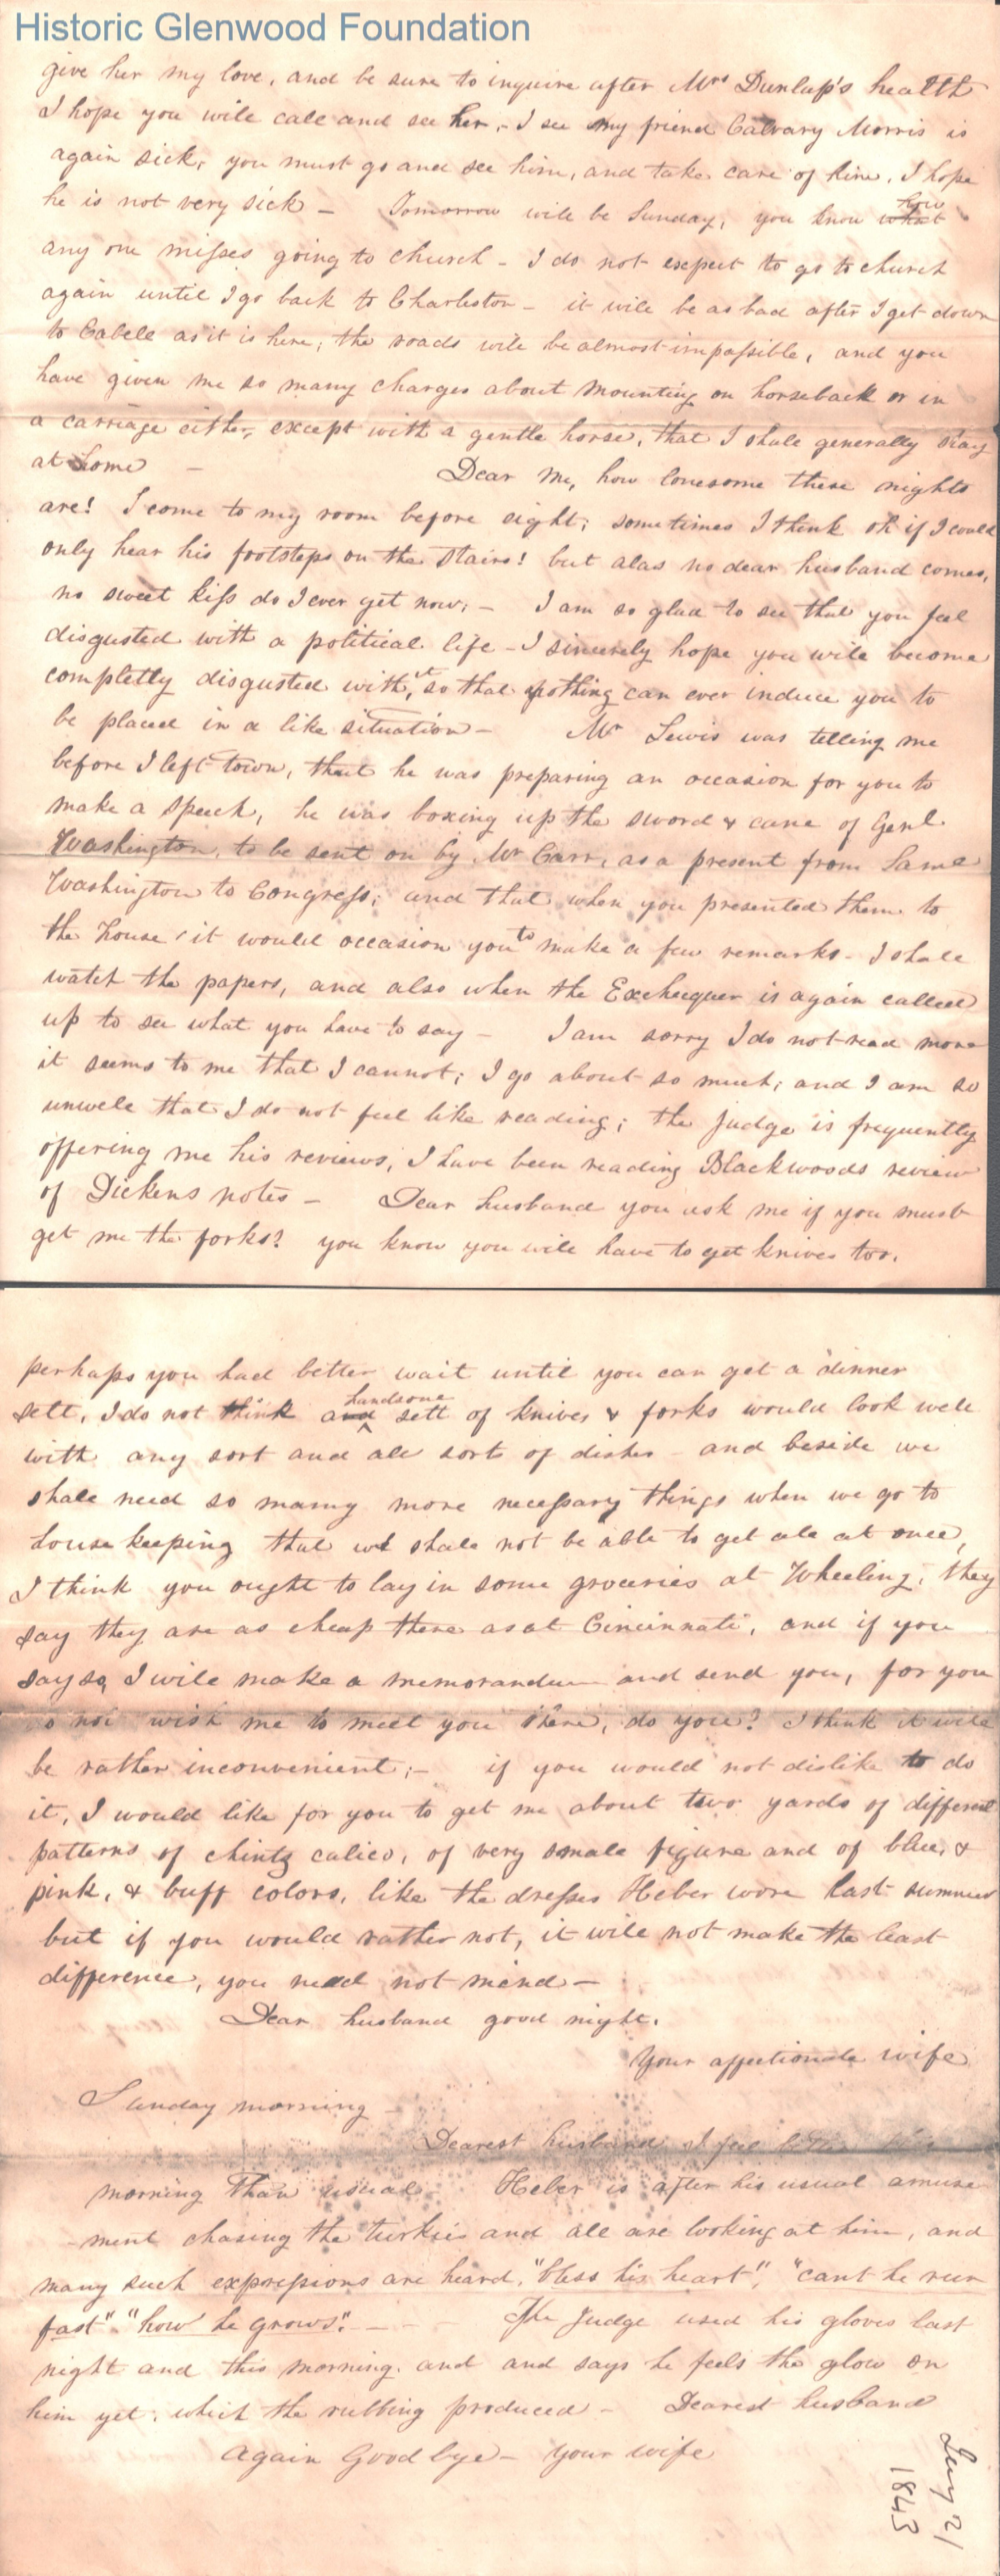 Historic Glenwood Foundation
give her my love, and be sure to inquire after Mrs Dunlap's health
I hope you will call and see her,- I see my friend Calvary Morris is
again sick, you must go and see him, and take care of him. I hope
he is not very sick - Tomorrow will be Sunday, you know what how
any one misses going to church - I do not expect to go to church
again until I go back to Charleston - it will be as bad after I get down
to Cabell as it is here; the roads will be almost impassible, and you
have given me so many charges about mounting on horseback or in
a carriage either, except with a gentle horse, that I shall generally stay
at home - Dear me, how lonesome these nights
are! I come to my room before eight; sometimes I think oh if I could
only hear his footsteps on the stairs! but alas no dear husband comes,
no sweet kiss do I ever get now; - I am so glad to see that you feel
disgusted with a political life - I sincerely hope you will become
completly disgusted with it, so that nothing can ever induce you to
be placed in a like situation - Mr Lewis was telling me
before I left town, that he was preparing an occasion for you to
make a speech, he was boxing up the sword & cane of Genl.
Washington, to be sent on by Mr Carr, as a present from Saml
Washington to Congress; and that when you presented them to
the House, it would occasion you to make a few remarks - I shall
watch the papers, and also when the Exchequer is again called
up to see what you have to say - I am sorry I do not read more
it seems to me that I cannot; I go about so much; and I am so
unwell that I do not feel like reading; the Judge is frequently
offering me his reviews, I have been reading Blackwoods review
of Dickens notes - Dear husband you ask me if you must
get me the forks? you know you will have to get knives too.
perhaps you had better wait until you can get a dinner
sett, I do not think and handsome sett of knives & forks would look well
with any sort and all sorts of dishes - and beside we
shall need so many more necessary things when we go to
housekeeping that we shall not be able to get all at once,
I think you ought to lay in some groceries at Wheeling, they
say they are as cheap there as at Cincinnati, and if you
say so, I will make a memorandum and send you, for you
do not wish me to meet you there, do you? I think it will
be rather inconvenient; - if you would not dislike to do
it, I would like for you to get me about two yards of different
patterns of chintz calico, of very small figure and of blue, &
pink, & buff colors, like the dresses Heber wore last summer
but if you would rather not, it will not make the least
difference, you need not mind -
Dear husband good night.
Your affectionate wife
Sunday morning -
Dearest husband I feel better this
morning than usual - Heber is after his usual amuse
-ment chasing the turkies and all are looking at him, and
many such expressions are heard, "bless his heart", "cant he run
fast" "how he grows". - - The Judge used his gloves last
night and this morning. and and says he feels the glow on
him yet, which the rubbing produced - Dearest husband
again Good bye - your wife
Jany 21
1843